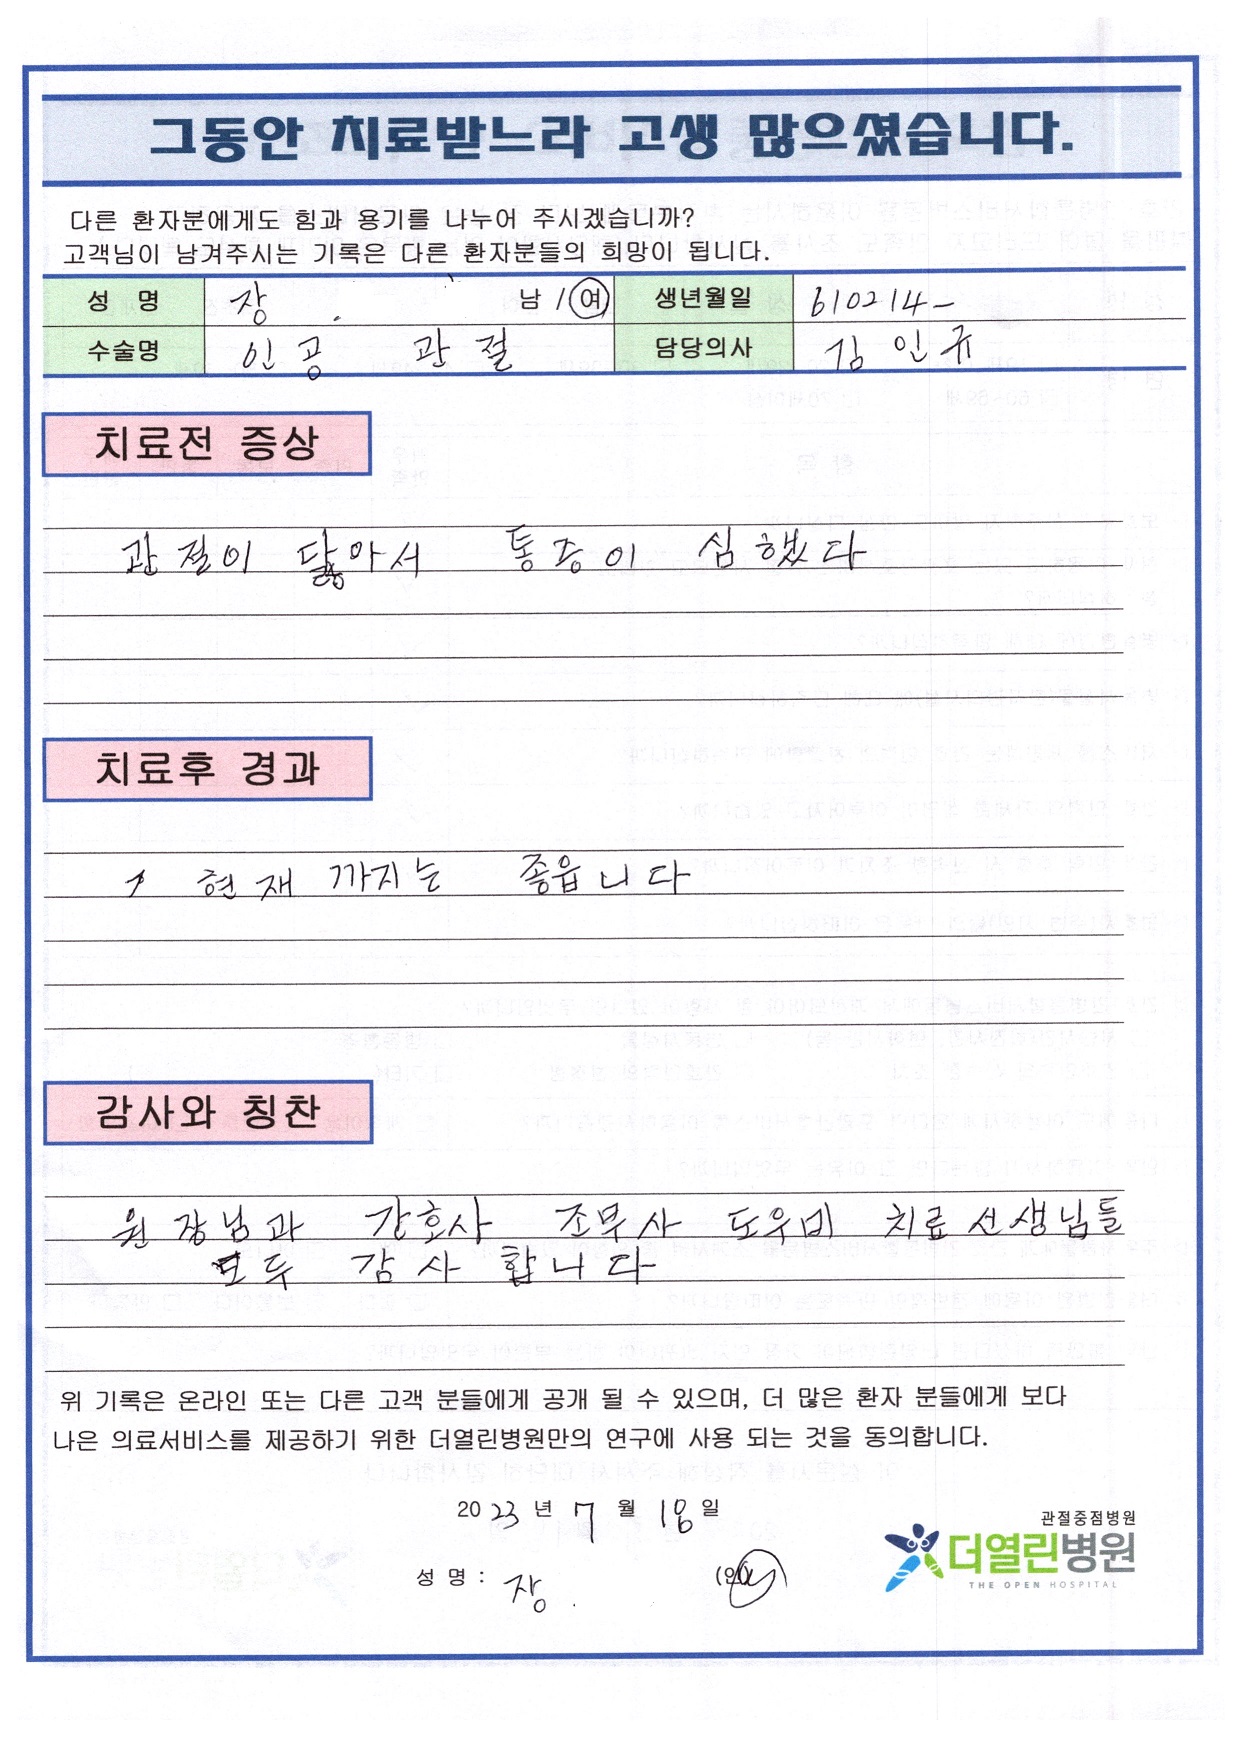 그동안 치료받느라 고생 많으셨습니다.
다른 환자분에게도 힘과 용기를 나누어 주시겠습니까?
고객님이 남겨주시는 기록은 다른 환자분들의 희망이 됩니다.
성 명 장 남 / 여 생년월일 610214-
수술명 인공 관절 담당의사 김인규
치료전 증상
관절이 닳아서 통증이 심했다
치료후 경과
현재 까지는 좋읍니다
감사와 칭찬
원장님과 간호사 조무사 도우비 치료선생님들
모두 감사 합니다
위 기록은 온라인 또는 다른 고객 분들에게 공개 될 수 있으며, 더 많은 환자 분들에게 보다
나은 의료서비스를 제공하기 위한 더열린병원만의 연구에 사용 되는 것을 동의합니다.
2023 년 7 월 18 일
성 명 : 장 (인)
관절중점병원
더열린병원
THE OPEN HOSPITAL